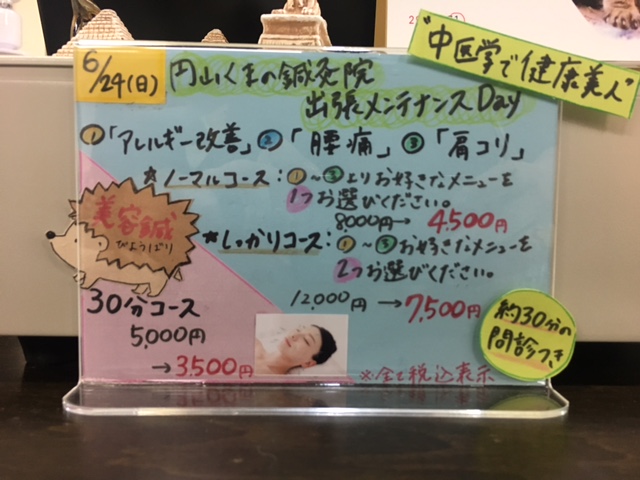 "中医学で健康美人"
6/24(日)
円山くまの鍼灸院
出張メンテナンスDay
①「アレルギー改善」②「腰痛」③「肩コリ」
★ノーマルコース:①~③よりお好きなメニューを
1つお選びください。
8000円→4,500円
★しっかりコース:①~③お好きなメニューを
2つお選びください。
12,000円→7,500円
美容鍼
びようばり
30分コース
5,000円
→3,500円
約30分の
問診つき
※全て税込表示